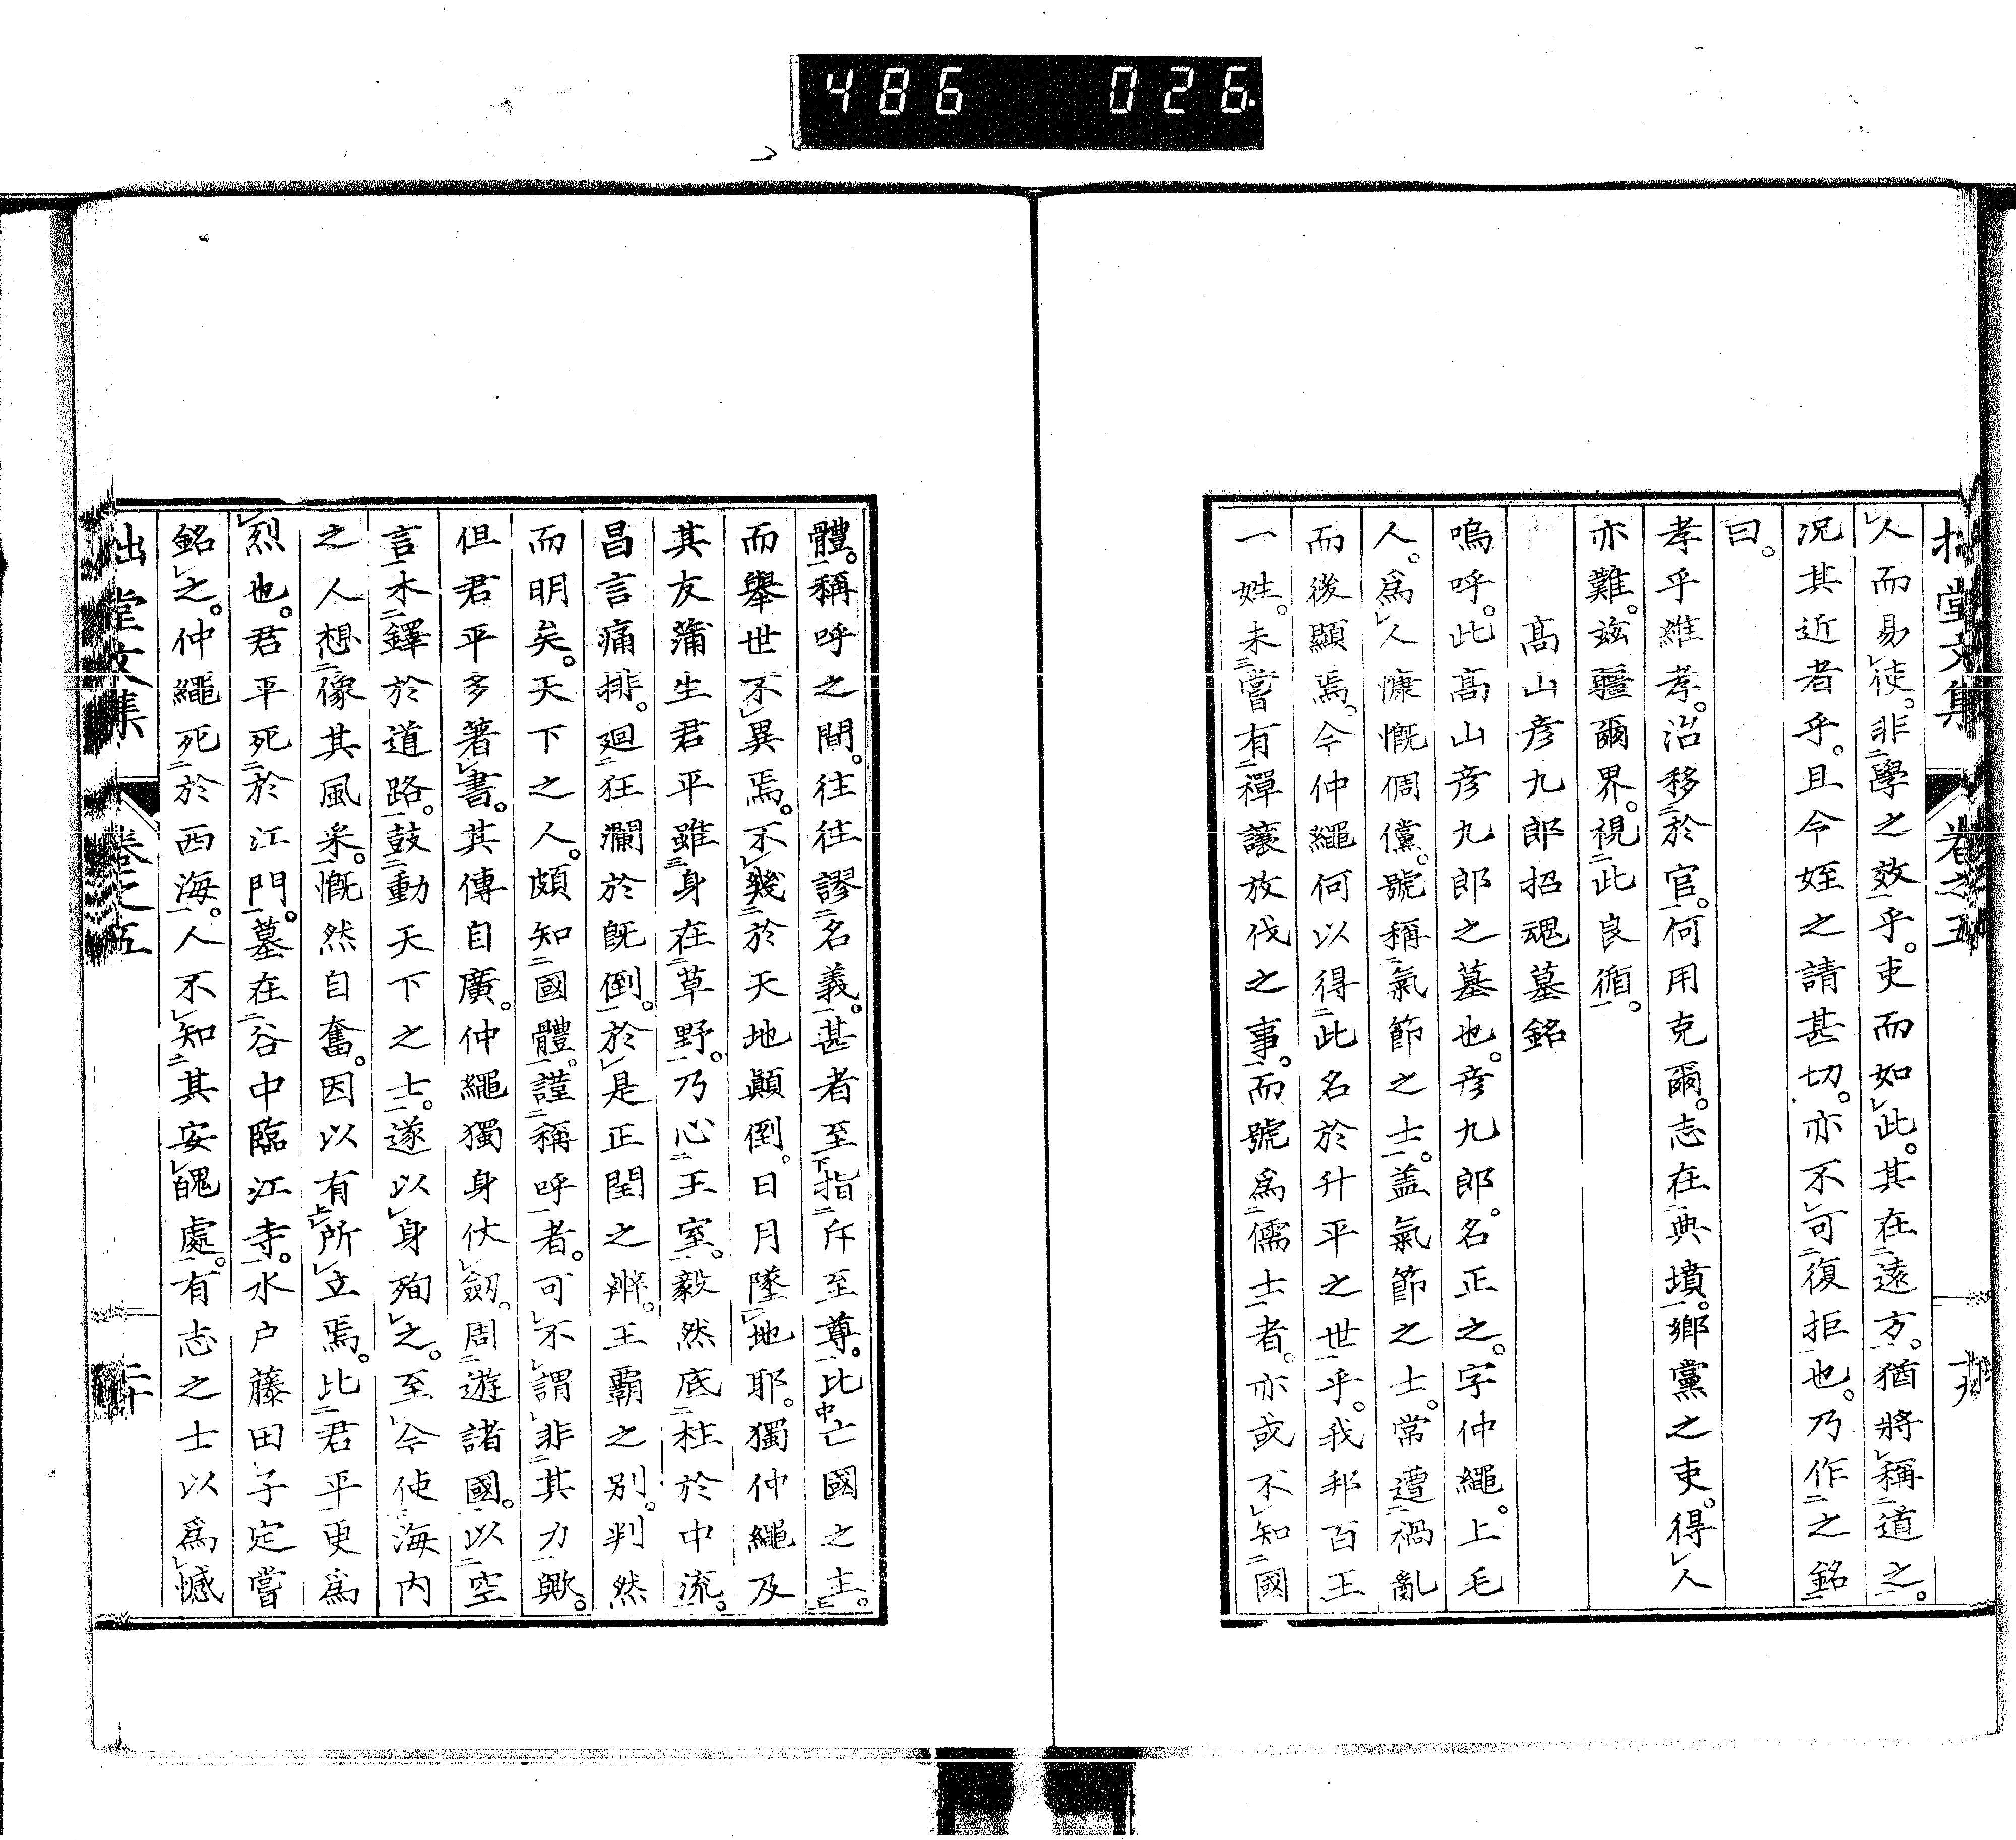 486 026
拙堂文集 卷之五
人而易使。非學之效乎。吏而如此。其在遠方。猶將稱道之。
況其近者乎。且令姪之請甚切。亦不可復拒也。乃作之銘
曰。
孝乎維孝。治移於官。何用克爾。志在典墳。鄉黨之吏。得人
亦難。玆疆爾界。視此良循。
高山彦九郎招魂墓銘
嗚呼。此高山彦九郎之墓也。彦九郎。名正之。字仲繩。上毛
人。爲人慷慨倜儻。號稱氣節之士。盖氣節之士。常遭禍亂
而後顯焉。今仲繩何以得此名於升平之世乎。我邦百王
一姓。未嘗有禪讓放伐之事。而號爲儒士者。亦或不知國
體。稱呼之間。往往謬名義。甚者至指斥至尊。比亡國之主。
而舉世不異焉。不幾於天地顚倒。日月墜地耶。獨仲繩及
其友蒲生君平雖身在草野。乃心王室。毅然底柱於中流。
昌言痛排。廻狂瀾於既倒。於是正閏之辨。王霸之别。判然
而明矣。天下之人。頗知國體。謹稱呼者。可不謂非其力歟。
但君平多著書。其傳自廣。仲繩獨身伏劒。周遊諸國。以空
言木鐸於道路。鼓動天下之士。遂以身殉之。至今使海内
之人想像其風采。慨然自奮。因以有所立焉。比君平更爲
烈也。君平死於江門。墓在谷中臨江寺。水戸藤田子定嘗
銘之。仲繩死於西海。人不知其安魄處。有志之士以爲憾
拙堂文集 卷之五 二十